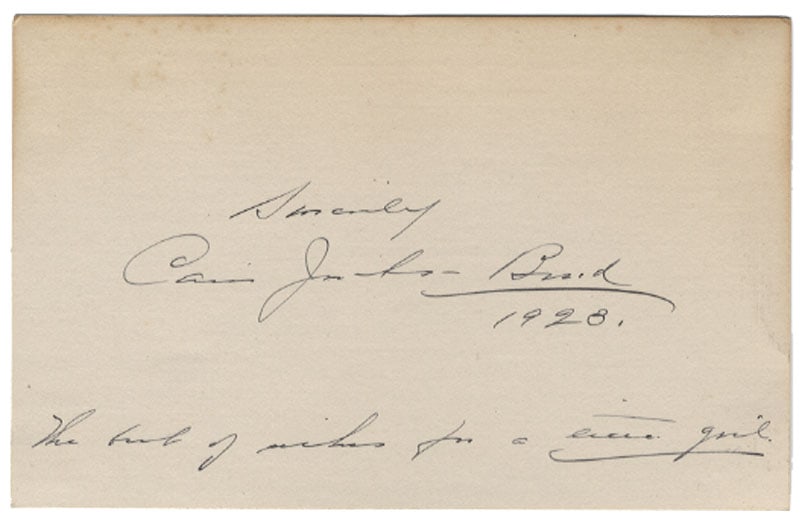 Sincerely
Carrie Jacobs-Bond
1928.
The best of wishes for a girl.